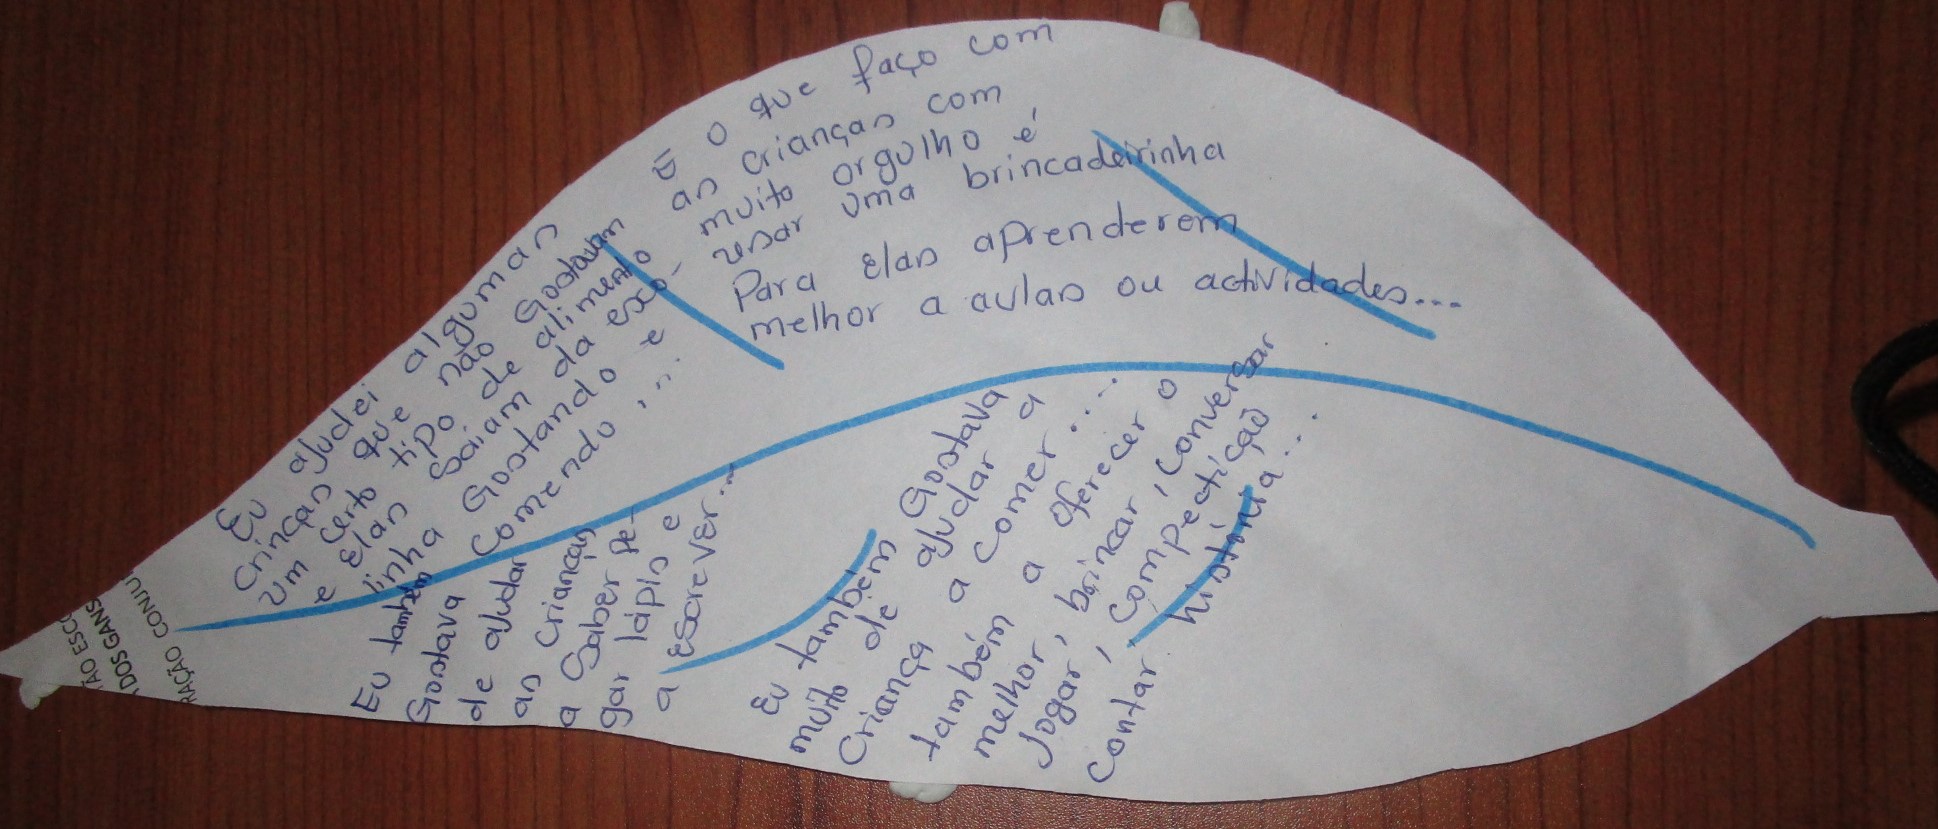 Eu ajudei algumas
crinças que não Gostavam
um certo tipo de alimento
e Elas saiam da esco-
linha Gostando e
comendo ,...
E o que faço com
as crianças com
muito orgulho é
usar uma brincadeirinha
Para elas aprenderem
melhor a aulas ou actividades....
Eu também
Gostava
de ajudar
as crianças
a Saber pe-
gar lápis e
a Escrever...
Eu também Gostava
muito de ajudar a
Criança a comer....
também a oferecer o
melhor, brincar, conversar
Jogar, compectição
contar história...
ÃO ESCO
DOS GANS
RAÇÃO CONJU